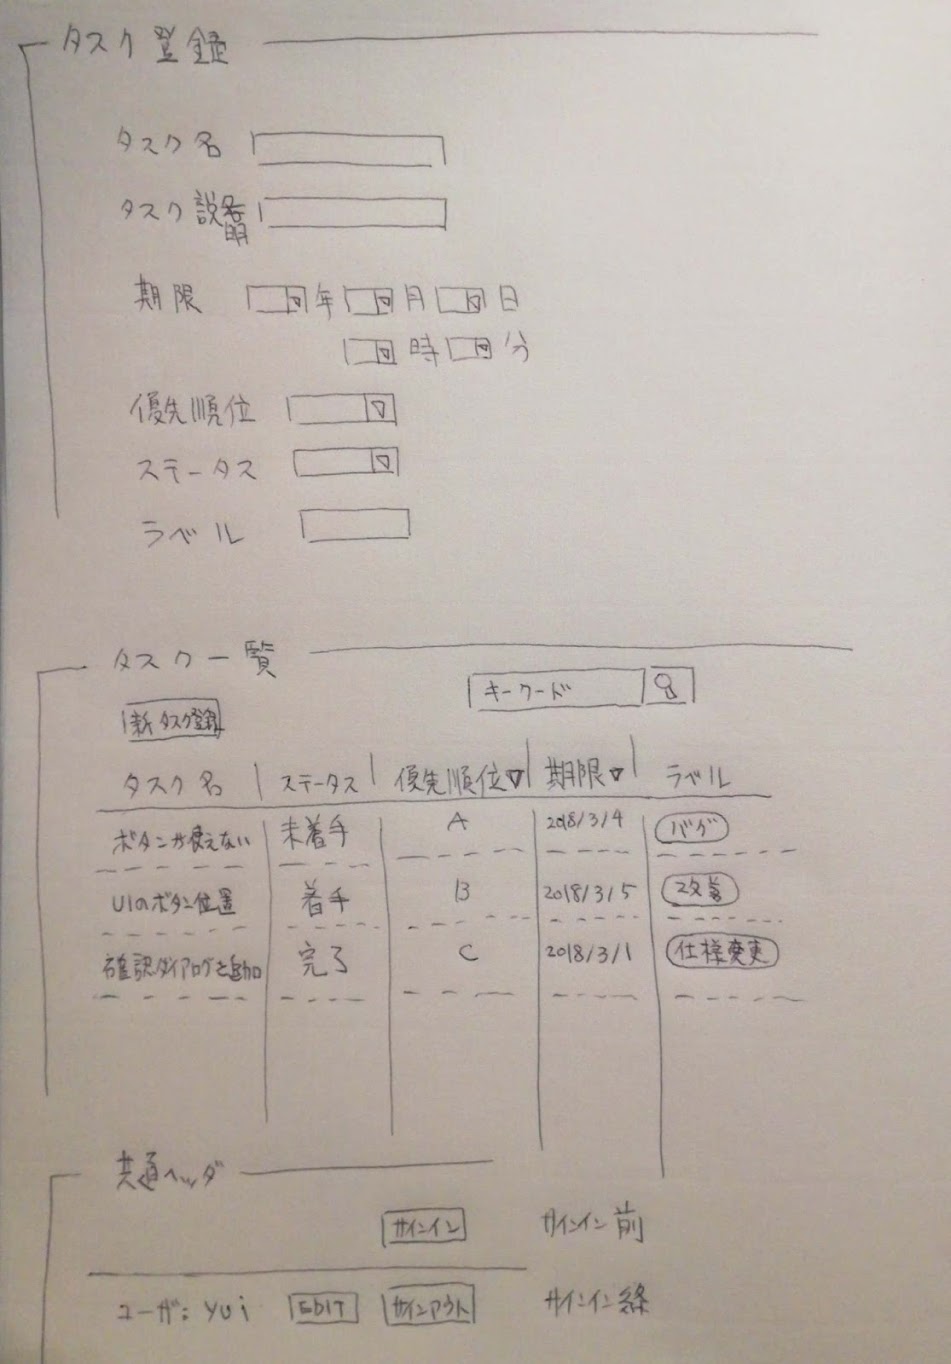 タスク登録
タスク名
タスク説明
期限 年 月 日
時 分
優先順位 ▽
ステータス ▽
ラベル
タスク一覧
キーワード
新タスク登録
タスク名 ステータス 優先順位▽ 期限▽ ラベル
ボタンが使えない 未着手 A 2018/3/4 バグ
UIのボタン位置 着手 B 2018/3/5 改善
確認ダイアログを追加 完了 C 2018/3/1 仕様変更
共通ヘッダ
サインイン サインイン前
ユーザ: yui EDIT サインアウト サインイン